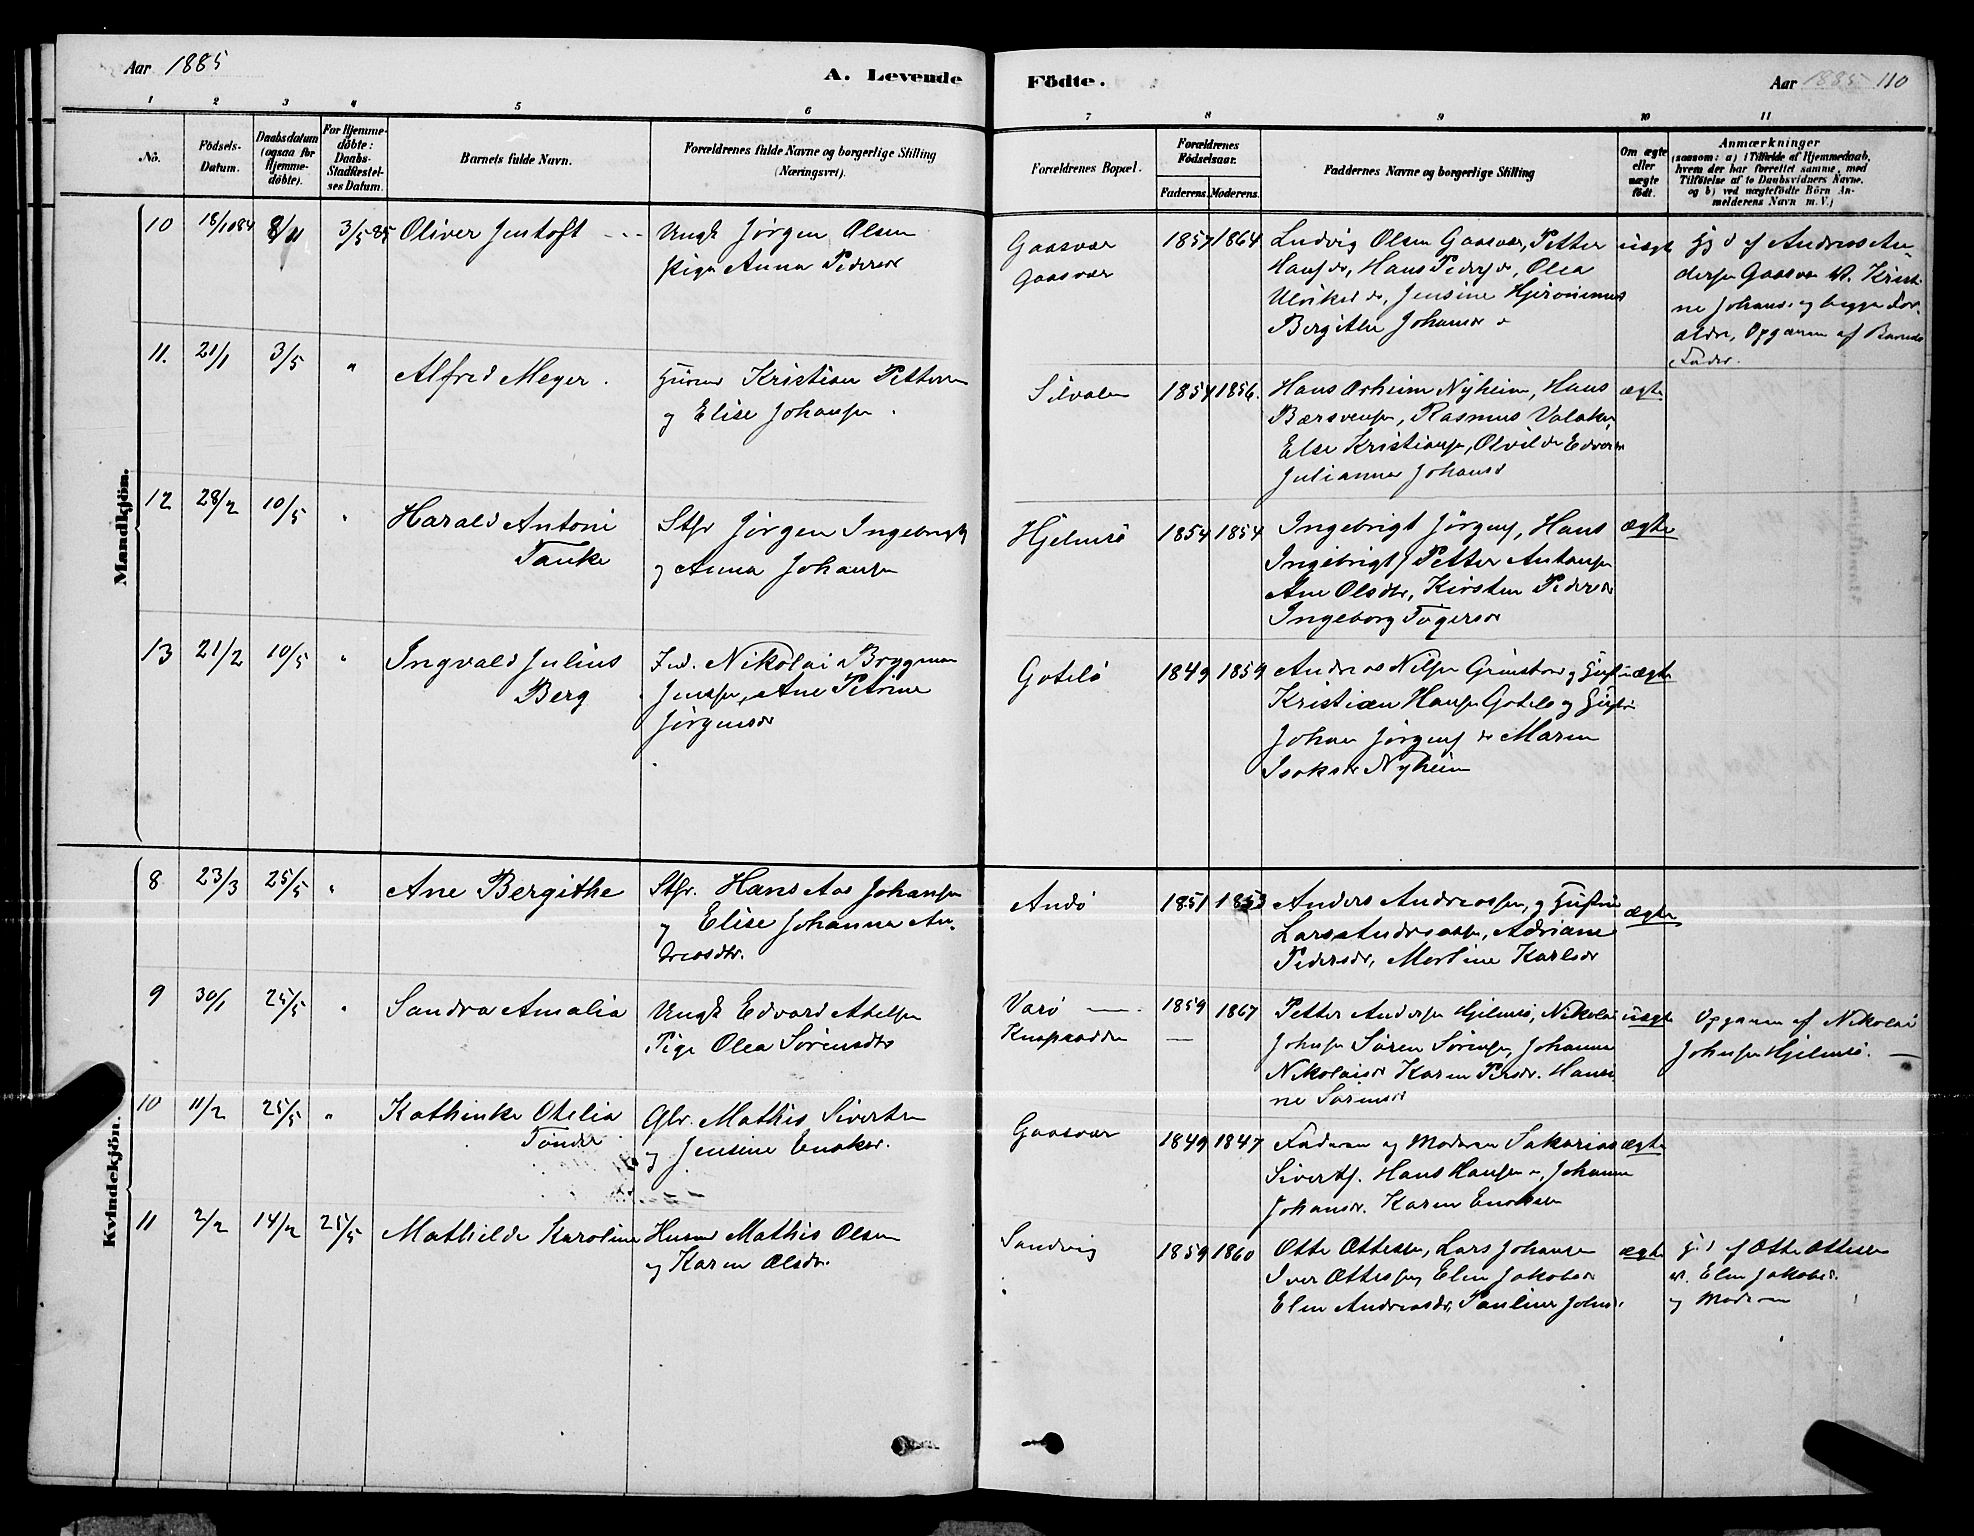 Aar 1885
A. Levende
Födte.
Aar 1885 110
1 2 3 4 5 6 7 8 9 10 11
No.
Födsels-
Datum.
Daabsdatum
(ogsaa for
Hjemme-
döbte).
For Hjemme-
döbte:
Daabs-
Stadfæstel-
ses Datum.
Barnets fulde Navn.
Forældrenes fulde Navne og borgerlige Stilling
(Næringsvei).
Forældrenes Bopæl.
Forældrenes
Födselsaar.
Faderens. Moderens.
Faddernes Navne og borgerlige Stilling
Om ægte
eller
uægte
födt.
Anmærkninger
(saasom: a) i Tilfælde af Hjemmedaab,
hvem der har forrettet samme, med
Tilföielse af to Daabsvidners Navne,
og b) ved uægtefödte Börn An-
melderens Navn m. V.)
Mandkjön.
10 18/10 84 8/11 3/5 85 Oliver Jentoft
Ungk Jørgen Olsen
Pige Anna Pedersd
Gaasvær
Gaasvær
1857 1864
Ludvig Olsen Gaasvær, Petter
Hansf do, Hans Pedersf do, Olea
Ulriksd do, Jensine Hjeronimus
Bergithe Johansd
uægte
Hjd af Andreas An-
dersen Gaasvær V. Kristi-
ne Johansd og begge For-
ældre, Opgaven af Barnets
Fader.
11. 21/1 3/5 " Alfred Meyer.
Husmd Kristian Pettersen
og Elise Johansen.
Silvalen
1854 1856.
Hans Orheim Nyheim, Hans
Bærsvensen, Rasmus Valaker,
Else Kristiansen, Olvilde Edvards
Julianna Johansd
ægte
12 28/2 10/5 " Harald Antoni
Tanke
Stfr Jørgen Ingebrigts
og Anna Johansen
Hjelmsö
1854 1854
Ingebrigt Jørgens, Hans
Ingebrigts Petter Antonsen
Ane Olsdtr, Kirsten Pedersd
Ingeborg Tygersd
ægte
13 21/2 10/5 " Ingvald Julius
Berg
Ind. Nikolai Brygman
Jensen, Ane Petrine
Jørgensd
Gotelö
1849 1859
Andreas Nilsen Grimstad og Hustru
Kristian Hansen Gotelö og Hustru
Johan Jørgens do Maren
Isaksd Nyheim
ægte
Kvindekjön.
8 23/3 25/5 " Ane Bergithe
Stfr. Hans Aas Johansen
og Elise Johanna An-
dreasdtr.
Andö
1851 1853
Anders Andreassen, og Hustru
Lars Andreassen, Adriane
Pedersdr, Martine Karlsdr
ægte
9 30/1 25/5 " Sandra Amalia
Ungk Edvard Abelsen
Pige Olea Sørensdtr
Varö
1859 1867
Petter Andersen Hjelmsö, Nikolai
Johnsen Sören Sörensen, Johanna
Nikolaisd Karen Persdr. Hansi-
ne Sörensd
uægte
Opgaven af Nikolai
Johnsen Hjelmsö.
10 11/2 25/5 " Kathinka Otelia
Tønder
Glr. Mathis Sivertsen
og Jensine Enoksd.
Gaasvær
1849 1847
Faderen og Moderen Sakarias
Sivertsf. Hans Hansen, Johanna
Johansd. Karen Enoksen
ægte
11 2/2 14/2 25/5 Mathilde Karoline
Husmd Mathis Olsen
og Karen Olsdr.
Sandvig
1859 1860
Otte Ottesen, Lars Johansen
Iver Ottesen, Elen Jakobsd
Elen Andreasdr, Pauline Johns.
ægte
Hjd af Otte Ottesen
v. Elen Jakobsd.
og Moderen